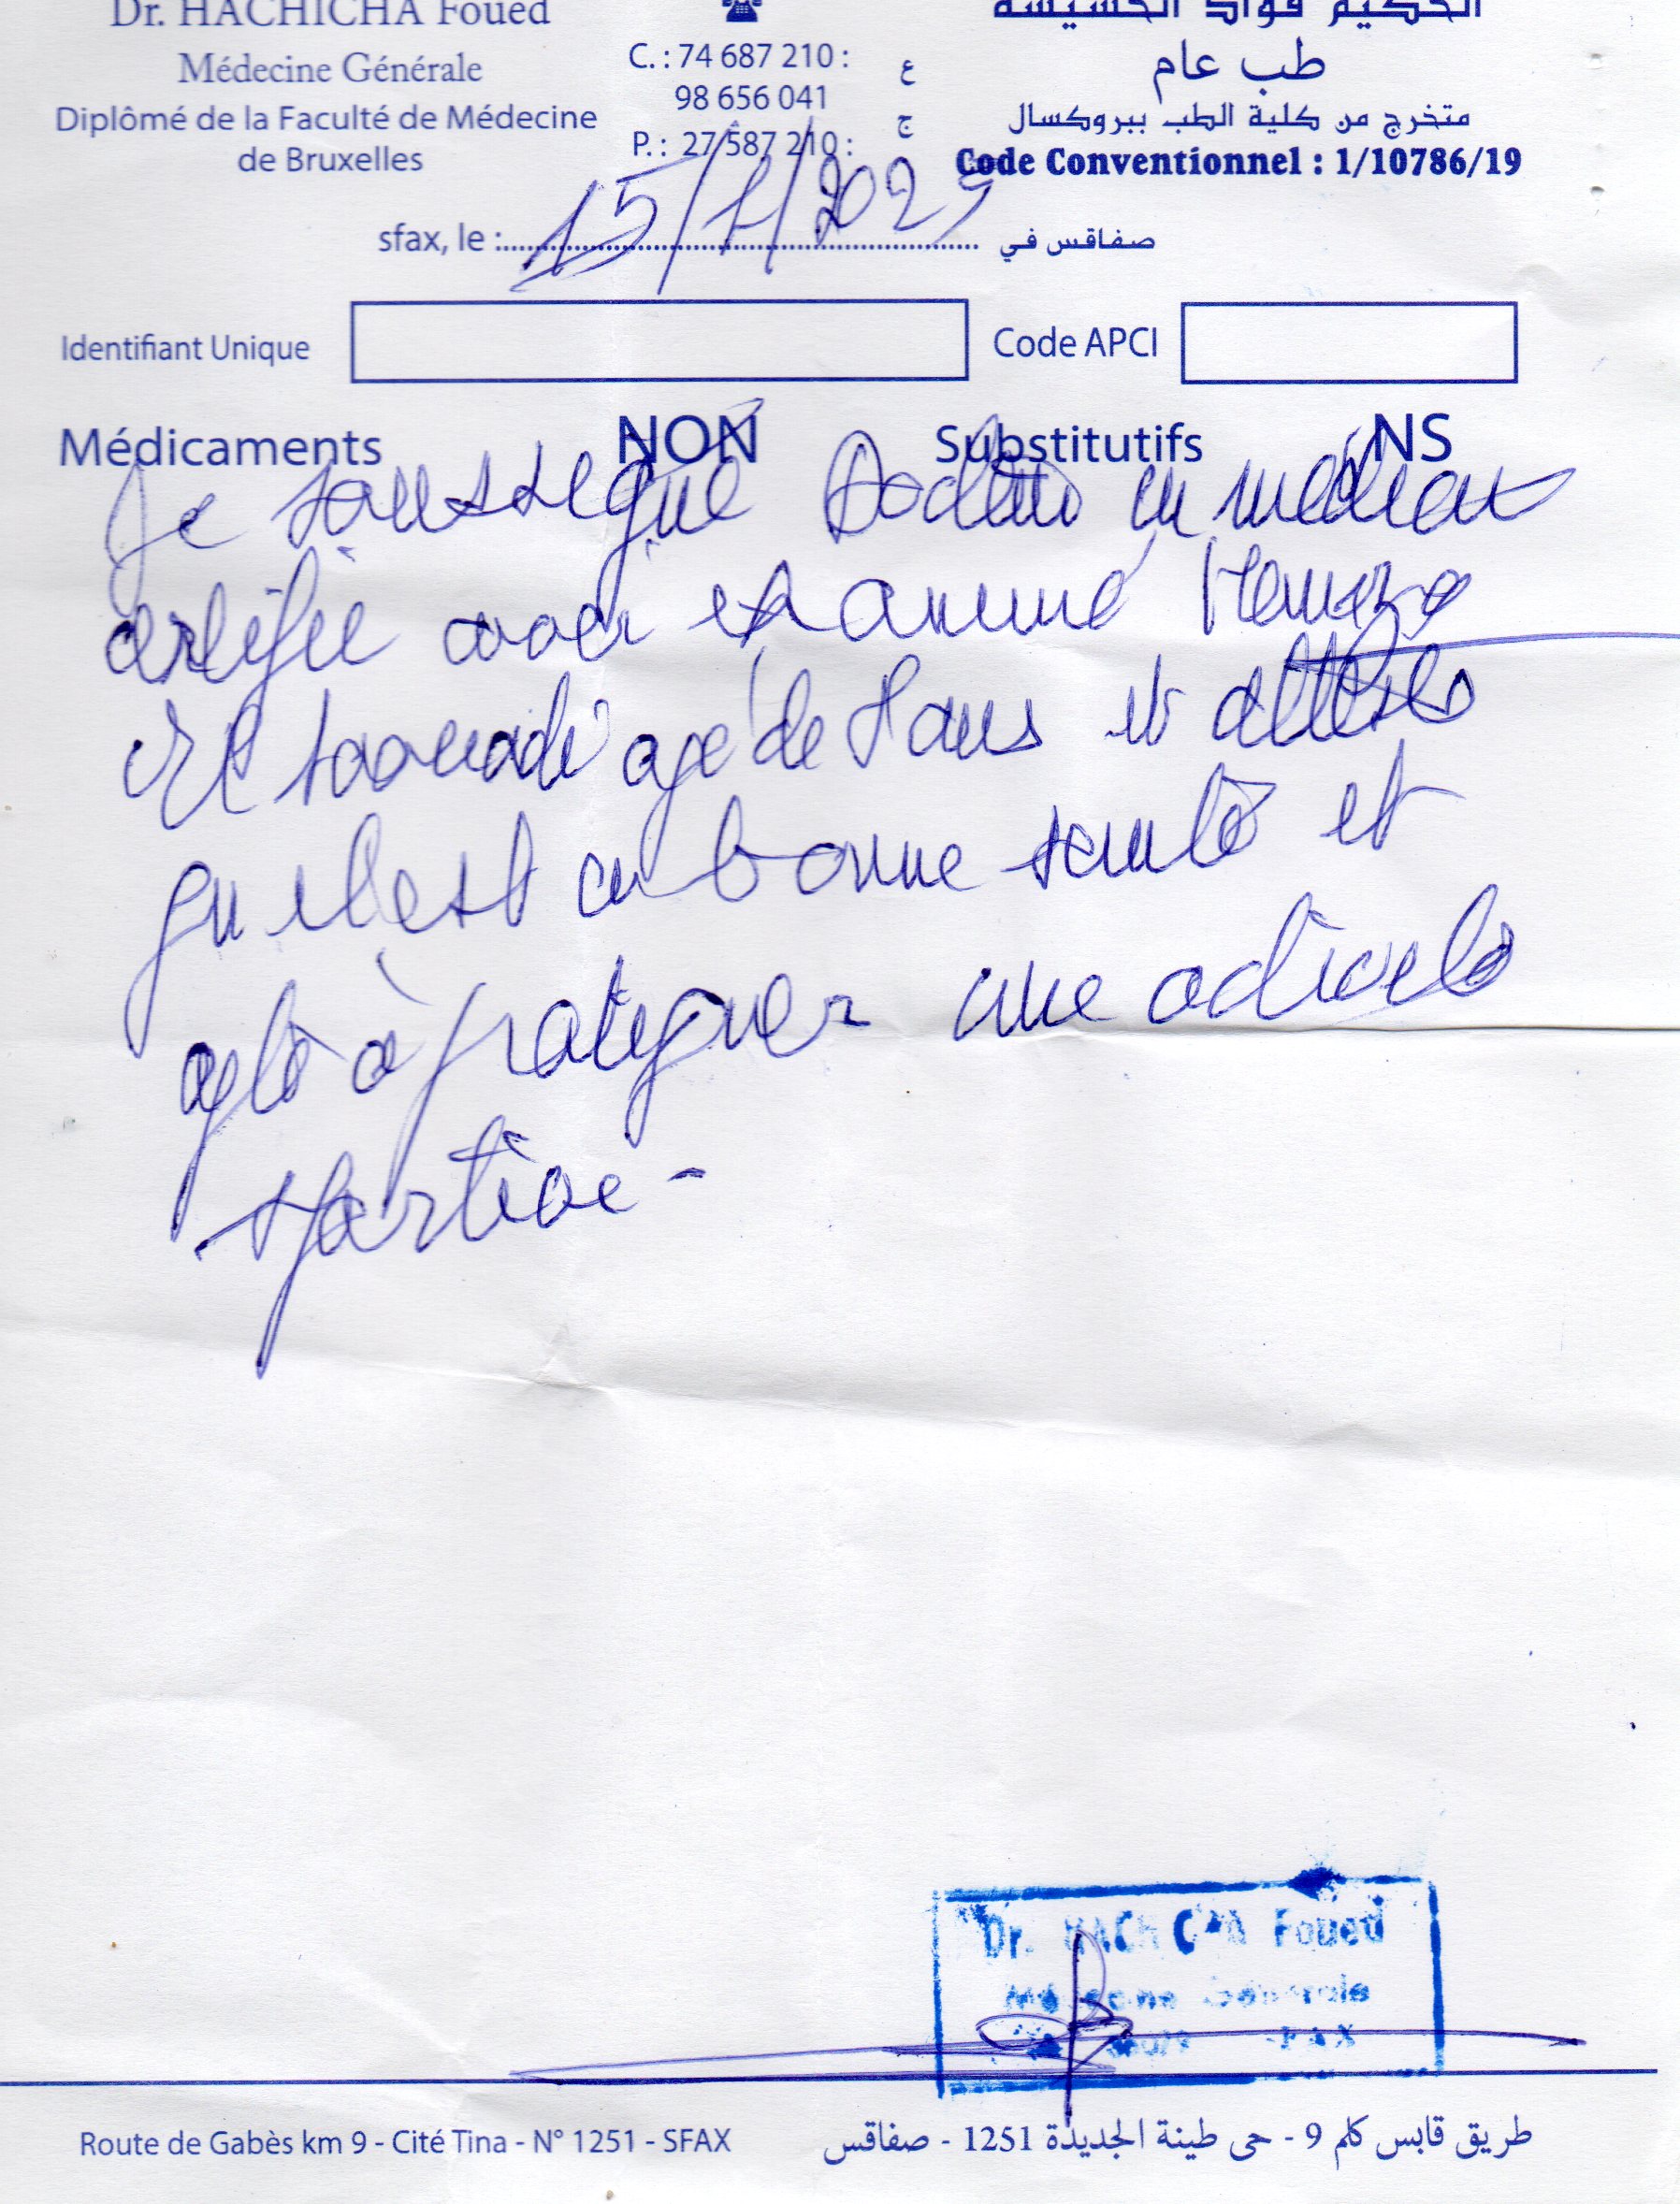 Dr. HACHICHA Foued
Médecine Générale
Diplômé de la Faculté de Médecine
de Bruxelles
C. : 74 687 210 : ع
98 656 041
P. : 27 587 210 : ج
الحكيم فؤاد الحشيشة
طب عام
متخرج من كلية الطب ببروكسال
Code Conventionnel : 1/10786/19
sfax, le : 15/1/2025 صفاقس في
Identifiant Unique
Code APCI
Médicaments NON Substitutifs NS
Je soussigné Docteur en médecine
certifie avoir examiné Hamza
agé de ans et atteste
qu il est en bonne santé et
apte à pratiquer une activité
sportive -
Dr. HACHICHA Foued
Médecine Générale
SFAX
Route de Gabès km 9 - Cité Tina - N° 1251 - SFAX
طريق قابس كلم 9 - حي طينة الجديدة 1251 - صفاقس